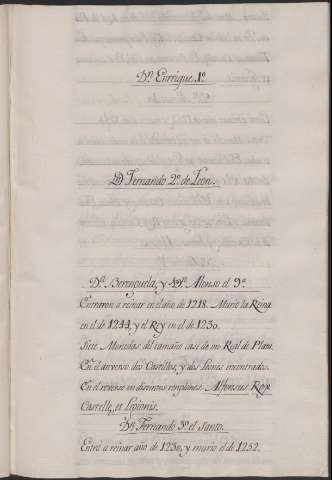 Dn. Enrrique. 1º.
Dn Fernando 2º. de Leon.
Dª. Berenguela, y Dn. Alonso el 9º.
Entraron a reinar en el año de 1218. Murio la Reina
en el de 1244, y el Rey en el de 1230.
Siete Monedas del tamaño casi de un Real de Plata.
En el anverso dos Castillos, y dos Leones encontrados.
En el reverso en distintos renglones. Alfonsus Rex
Castelle, et Legionis.
Dn. Fernando 3º. el Santo.
Entró a reinar año de 1230, y murio el de 1252.